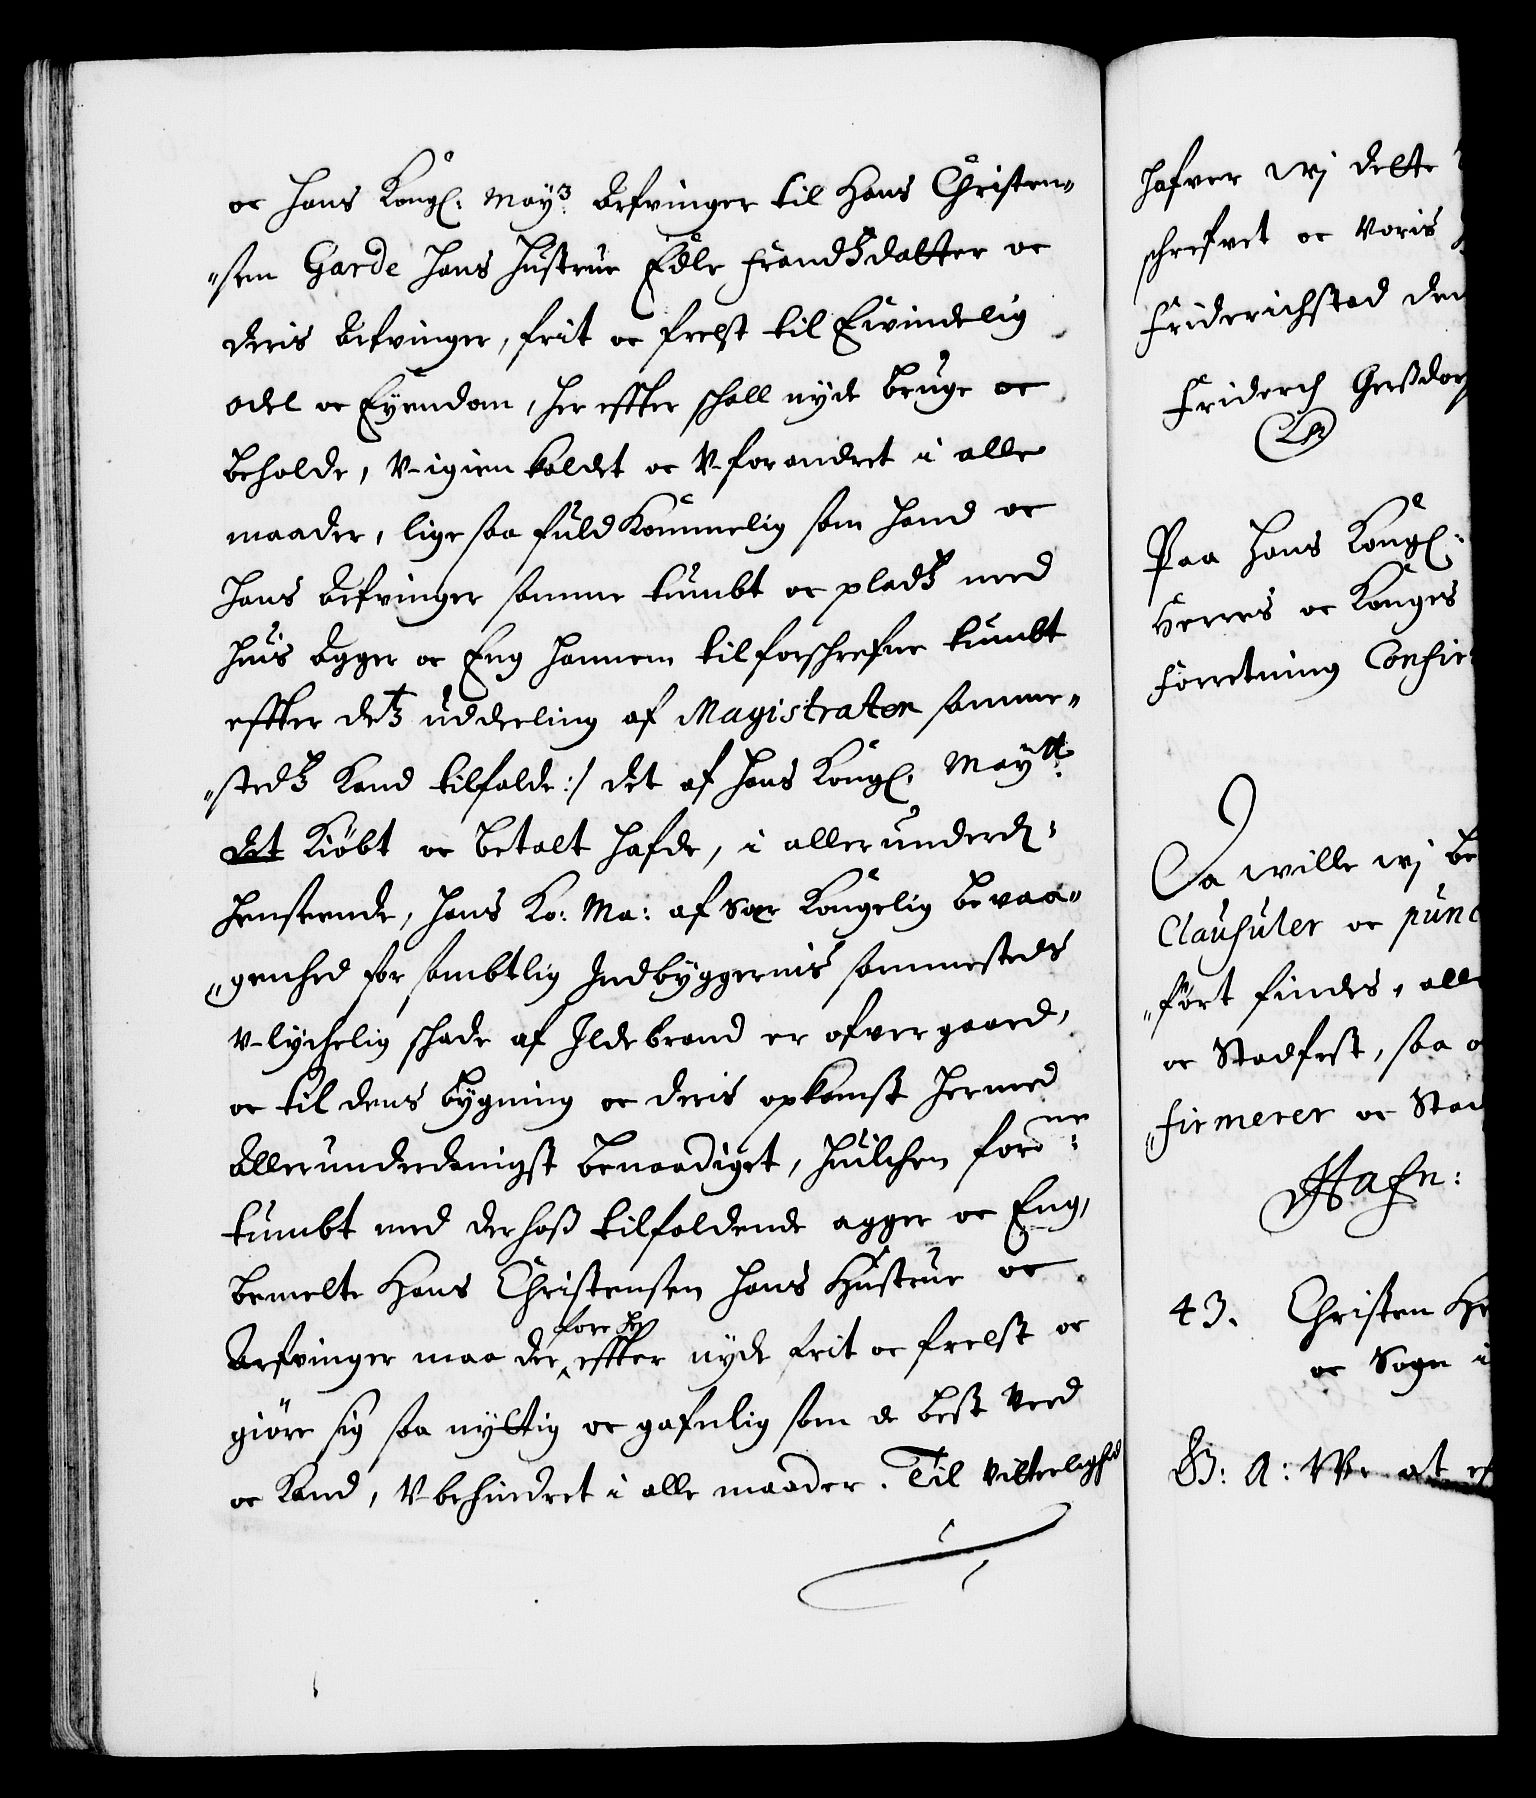 oc Hans Kongl. May3. Arfvinger til Hans Christen„
„sen Garde Hans Hustrue Edle Frandtzdatter oc
deris Arfvinger, frit oc frelst til Evindelig
odel oc Eyendom, her effter schall nyde bruge oc
beholde, V-igien kaldet oc V-forandret i alle
maader, lige saa fuldkommelig som Hand oc
Hans Arfvinger samme tumbt oc pladtz med
Huis Agger oc Eng Hannem til forschrefne tumbt
effter detz uddeeling af Magistraten samme„
„stedtz kand tilfalde :/ det af Hans Kongl. Maytt.
det Kiöbt oc betalt Hafde, i allerunderd:
Henseende, Hans Ko: Ma: af Sær Kongelig bevaa„
„genhed for sambtlig Indbyggernis sammesteds
V-lychelig schade af Ildebrand er ofvergaaed,
oc til dens bygning oc deris opkomst Hermed
Allerunderdanigst benaadiget, Huilchen forne:
tumbt med der hoß tilfaldende agger oc Eng,
bemelte Hans Christensen Hans Hustrue oc
Arfvinger maa der fore her effter nyde frit oc frelst oc
giöre sig saa nyttig oc gafnlig som de best veed
oc kand, V-behindret i alle maader. Til vitterlighed
Hafver wj dette
schrefvet oc voris
Friderichstad den
Friderch Gerßdorf
LS.
Paa Hans Kongl:
Herres oc Konges
Forretning Confir
Da wille wj be
Clausuler oc punc
„fört findes, alle
oc Stadfest, saa o
„firmerer oc Stad
Hafn:
43. Christen He
oc Sogn i
G: A: W: at ef